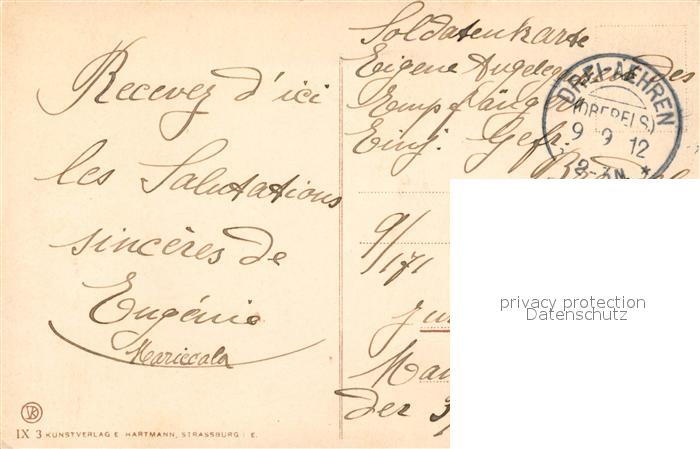 Recevez d'ici
les Salutations
sincères de
Eugénie
Soldatenkarte
Eigene Angelegenheit des
Empfängers
Einj. Gefr.
9/171
Man
der
DREI-AEHREN
(OBERELS.)
9 9 12
2-3N. *
privacy protection
Datenschutz
IX 3 KUNSTVERLAG E. HARTMANN, STRASSBURG I. E.